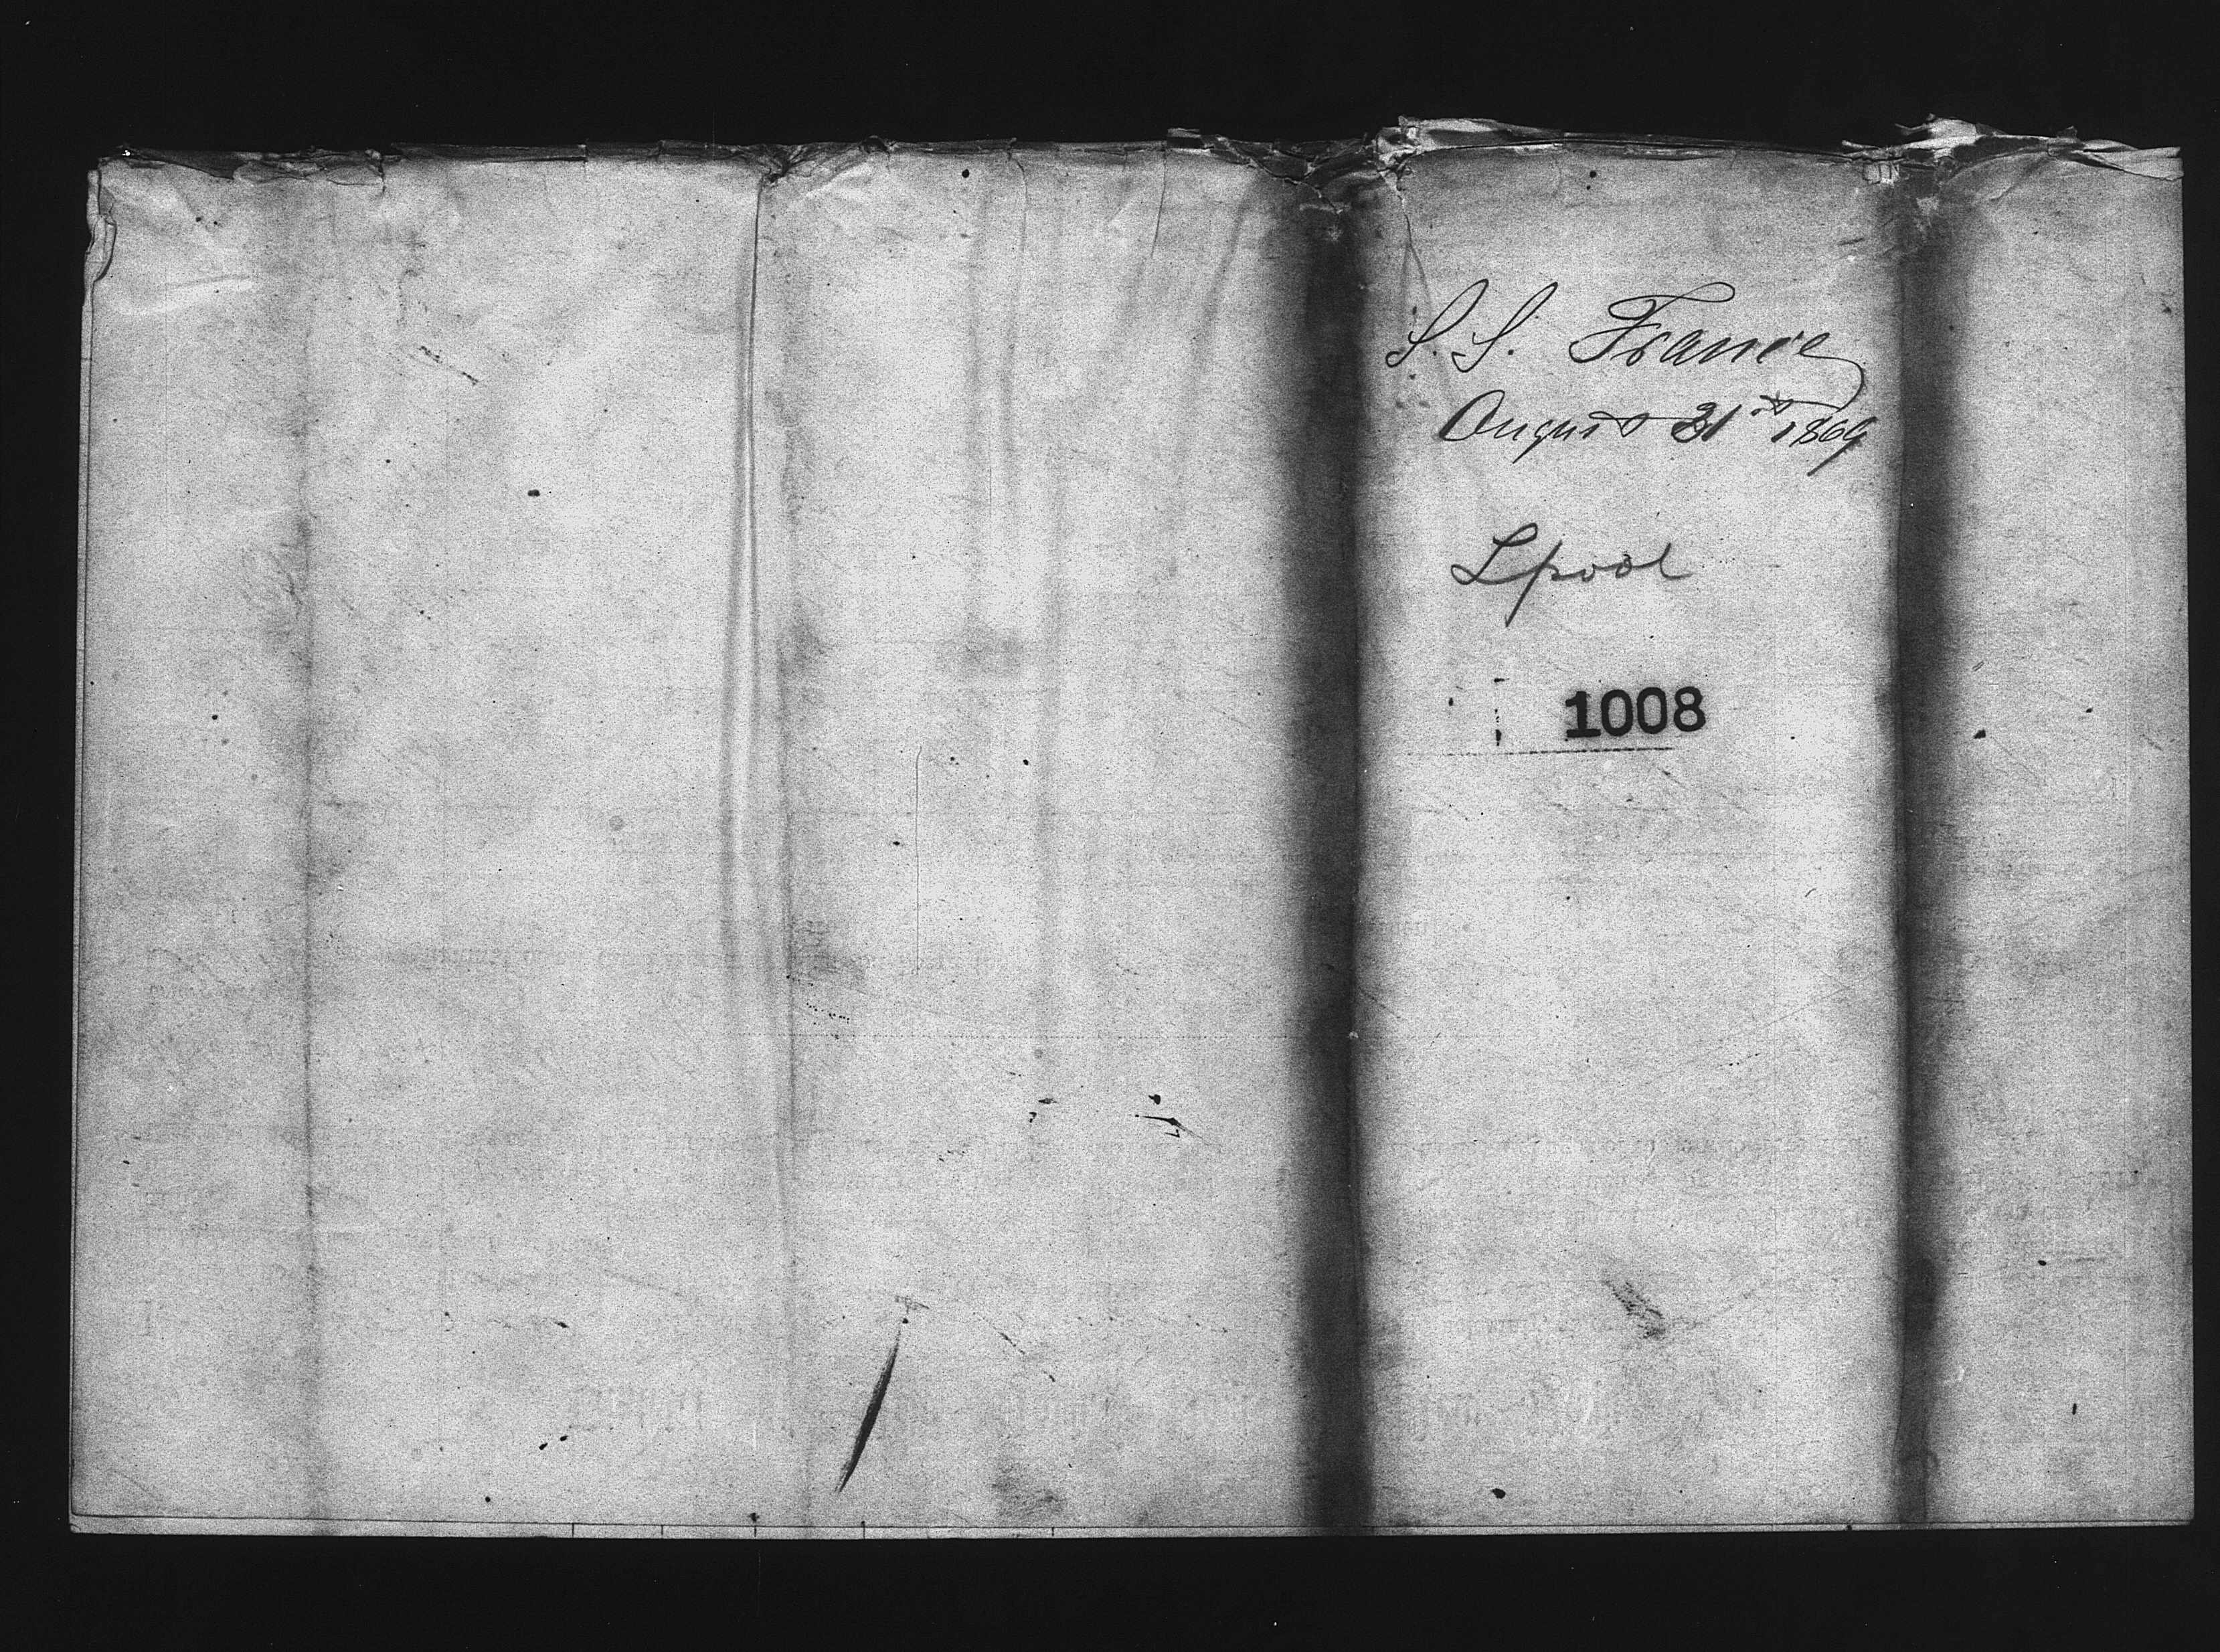 S. S. France
August 31st 1869
Lpool
1008